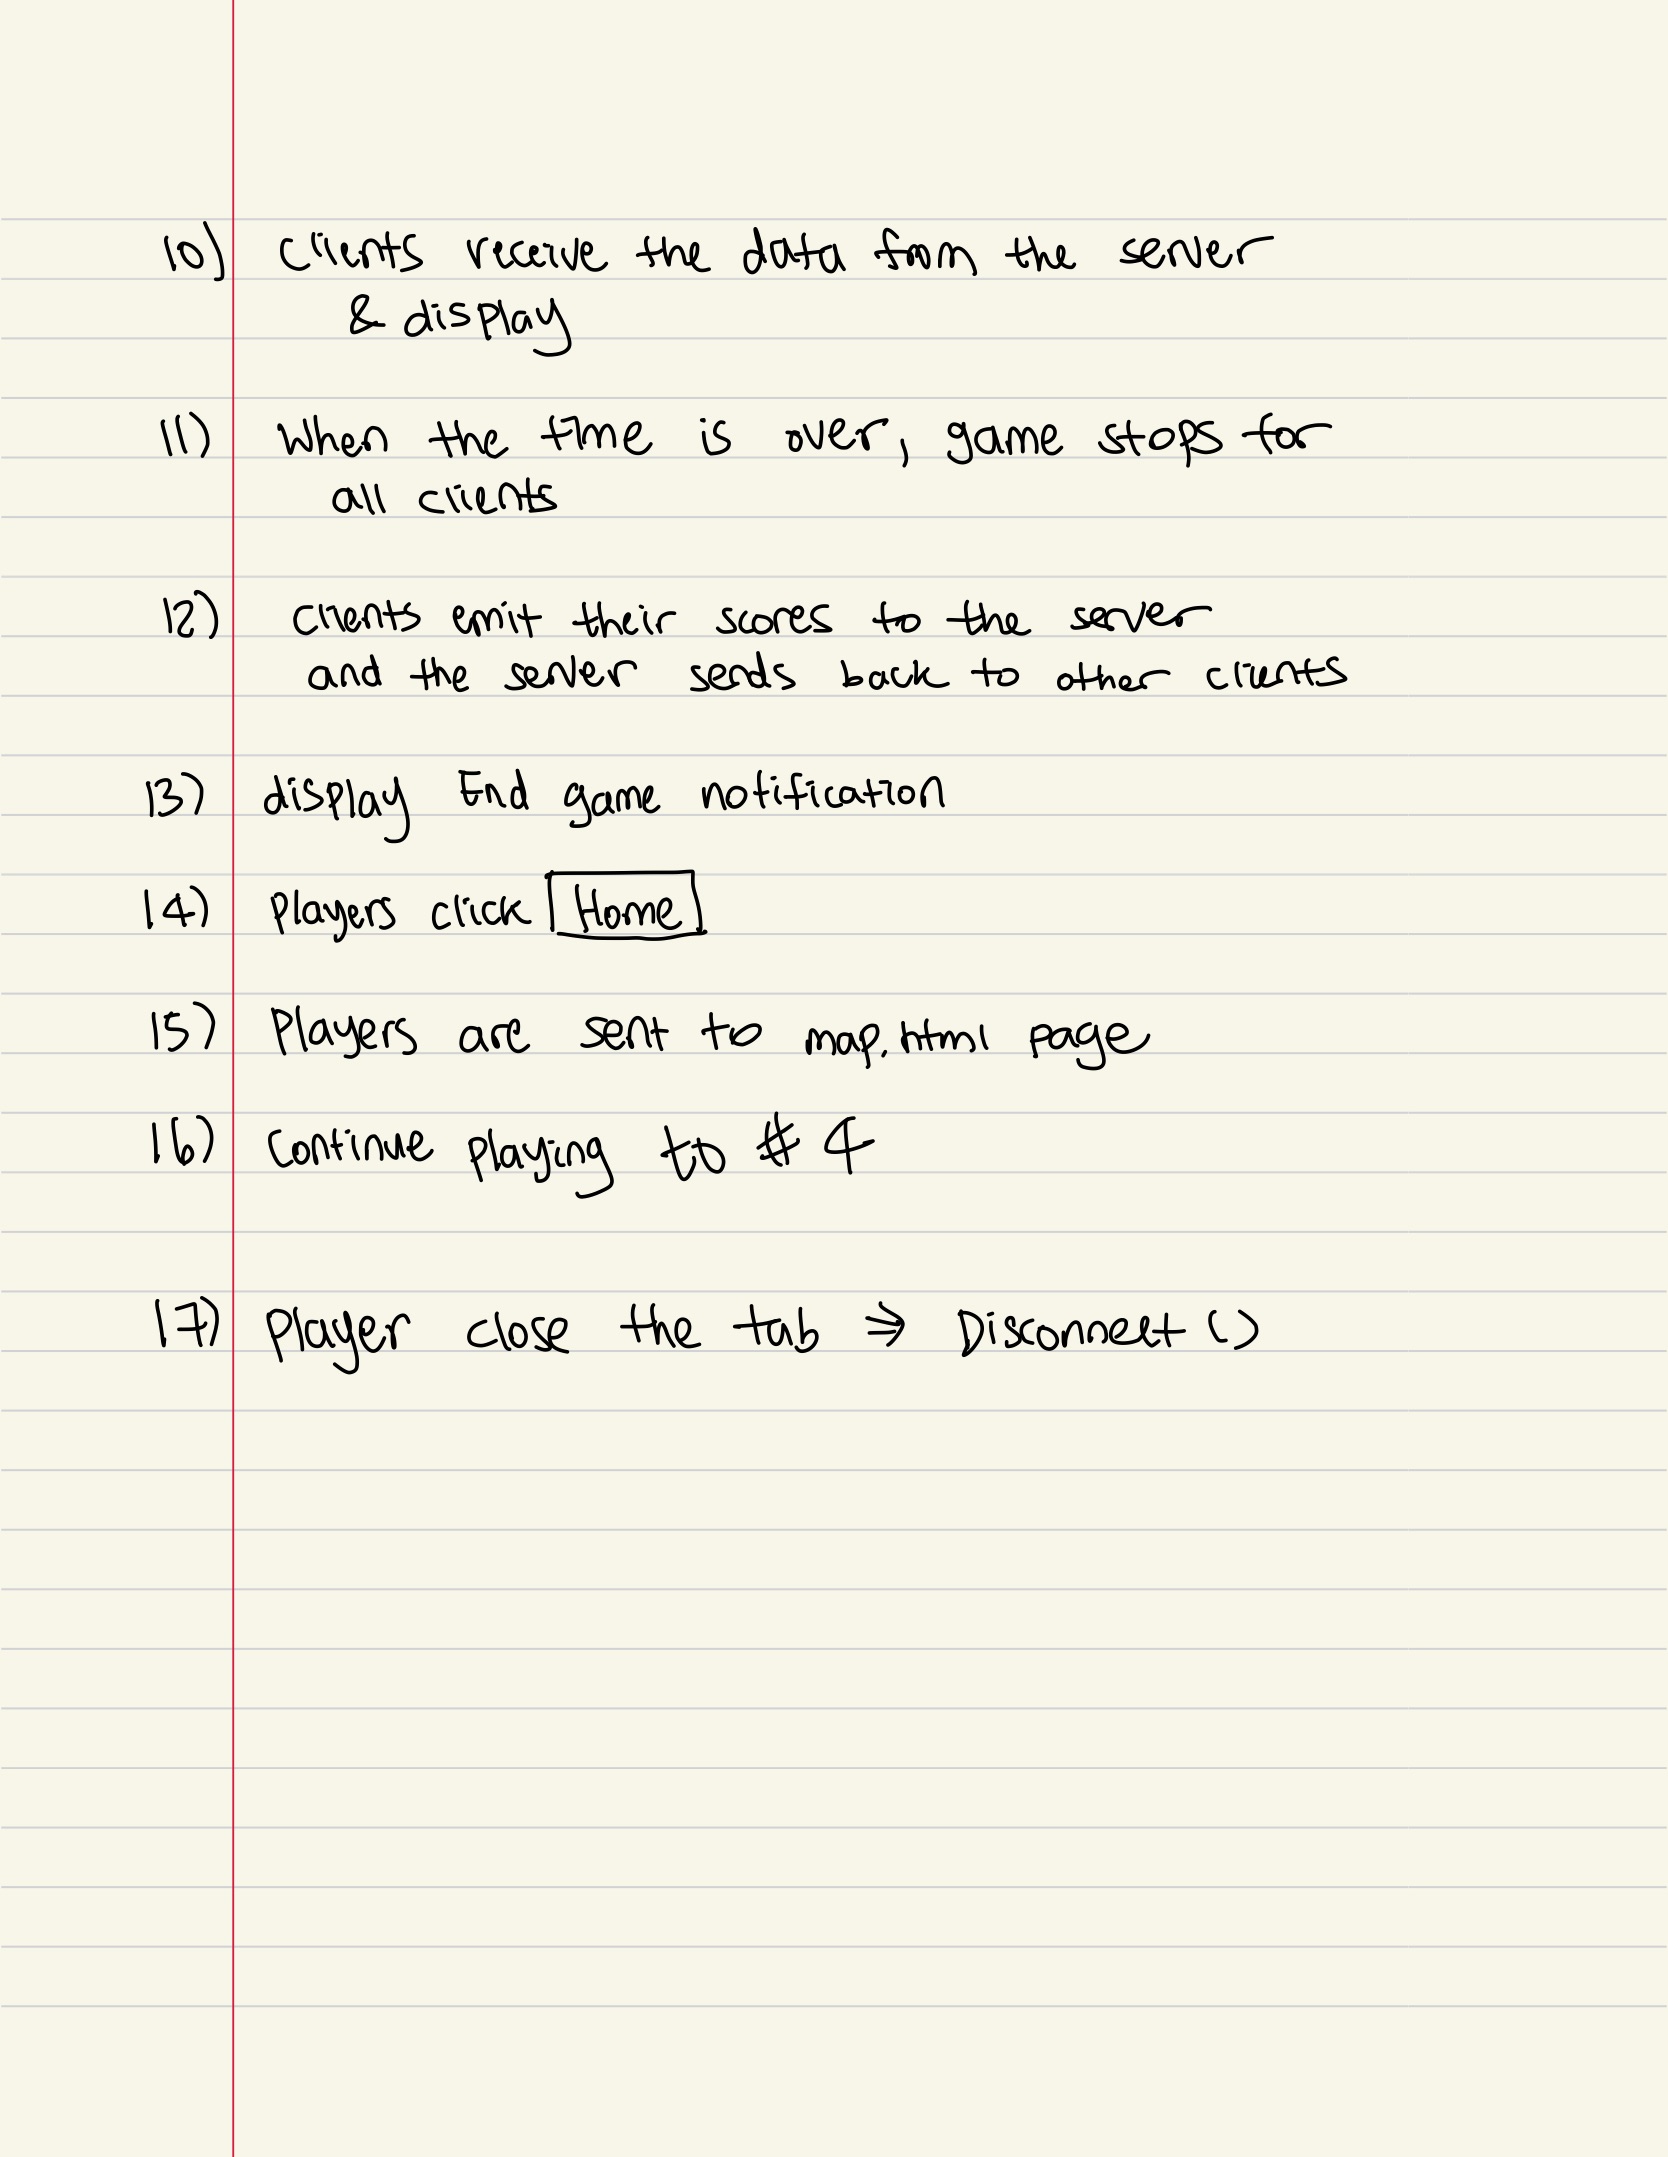 10) Clients receive the data from the server
& display
11) When the time is over, game stops for
all clients
12) Clients emit their scores to the server
and the server sends back to other clients
13) display End game notification
14) Players click Home
15) Players are sent to map.html page
16) Continue playing to # 4
17) Player close the tab ⇒ Disconnect ()